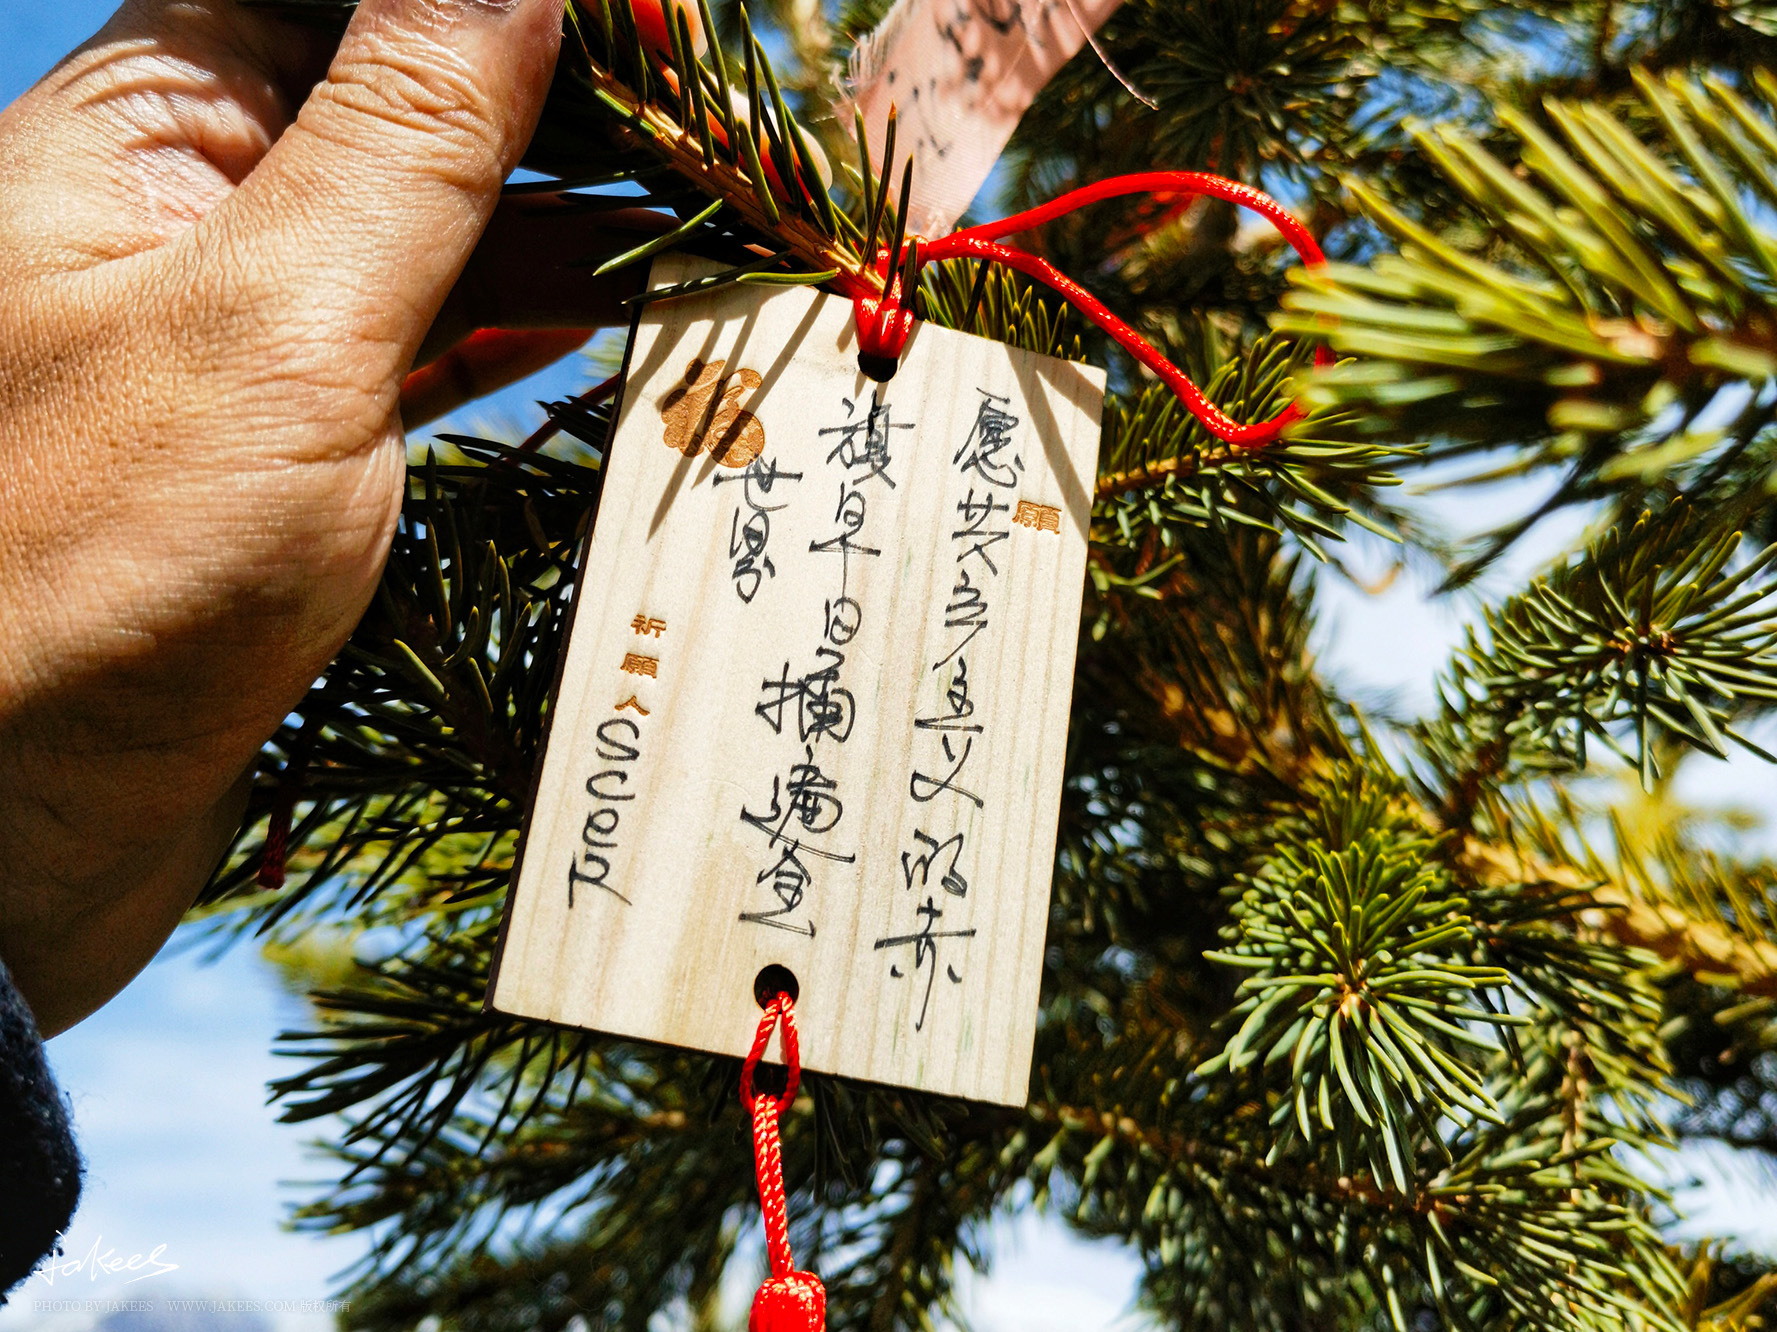 願
愿共产主义的赤
旗早日插遍全
世界
福
祈願人
SCPF
jakees
PHOTO BY JAKEES WWW.JAKEES.COM 版权所有